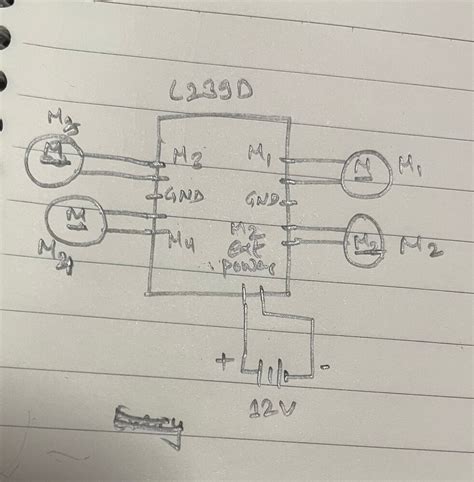 L239D
M3
M
M3
M1
M
M1
GND
GND
M
M4
M4
M2
M2
M2
Ext
power
+
-
12V